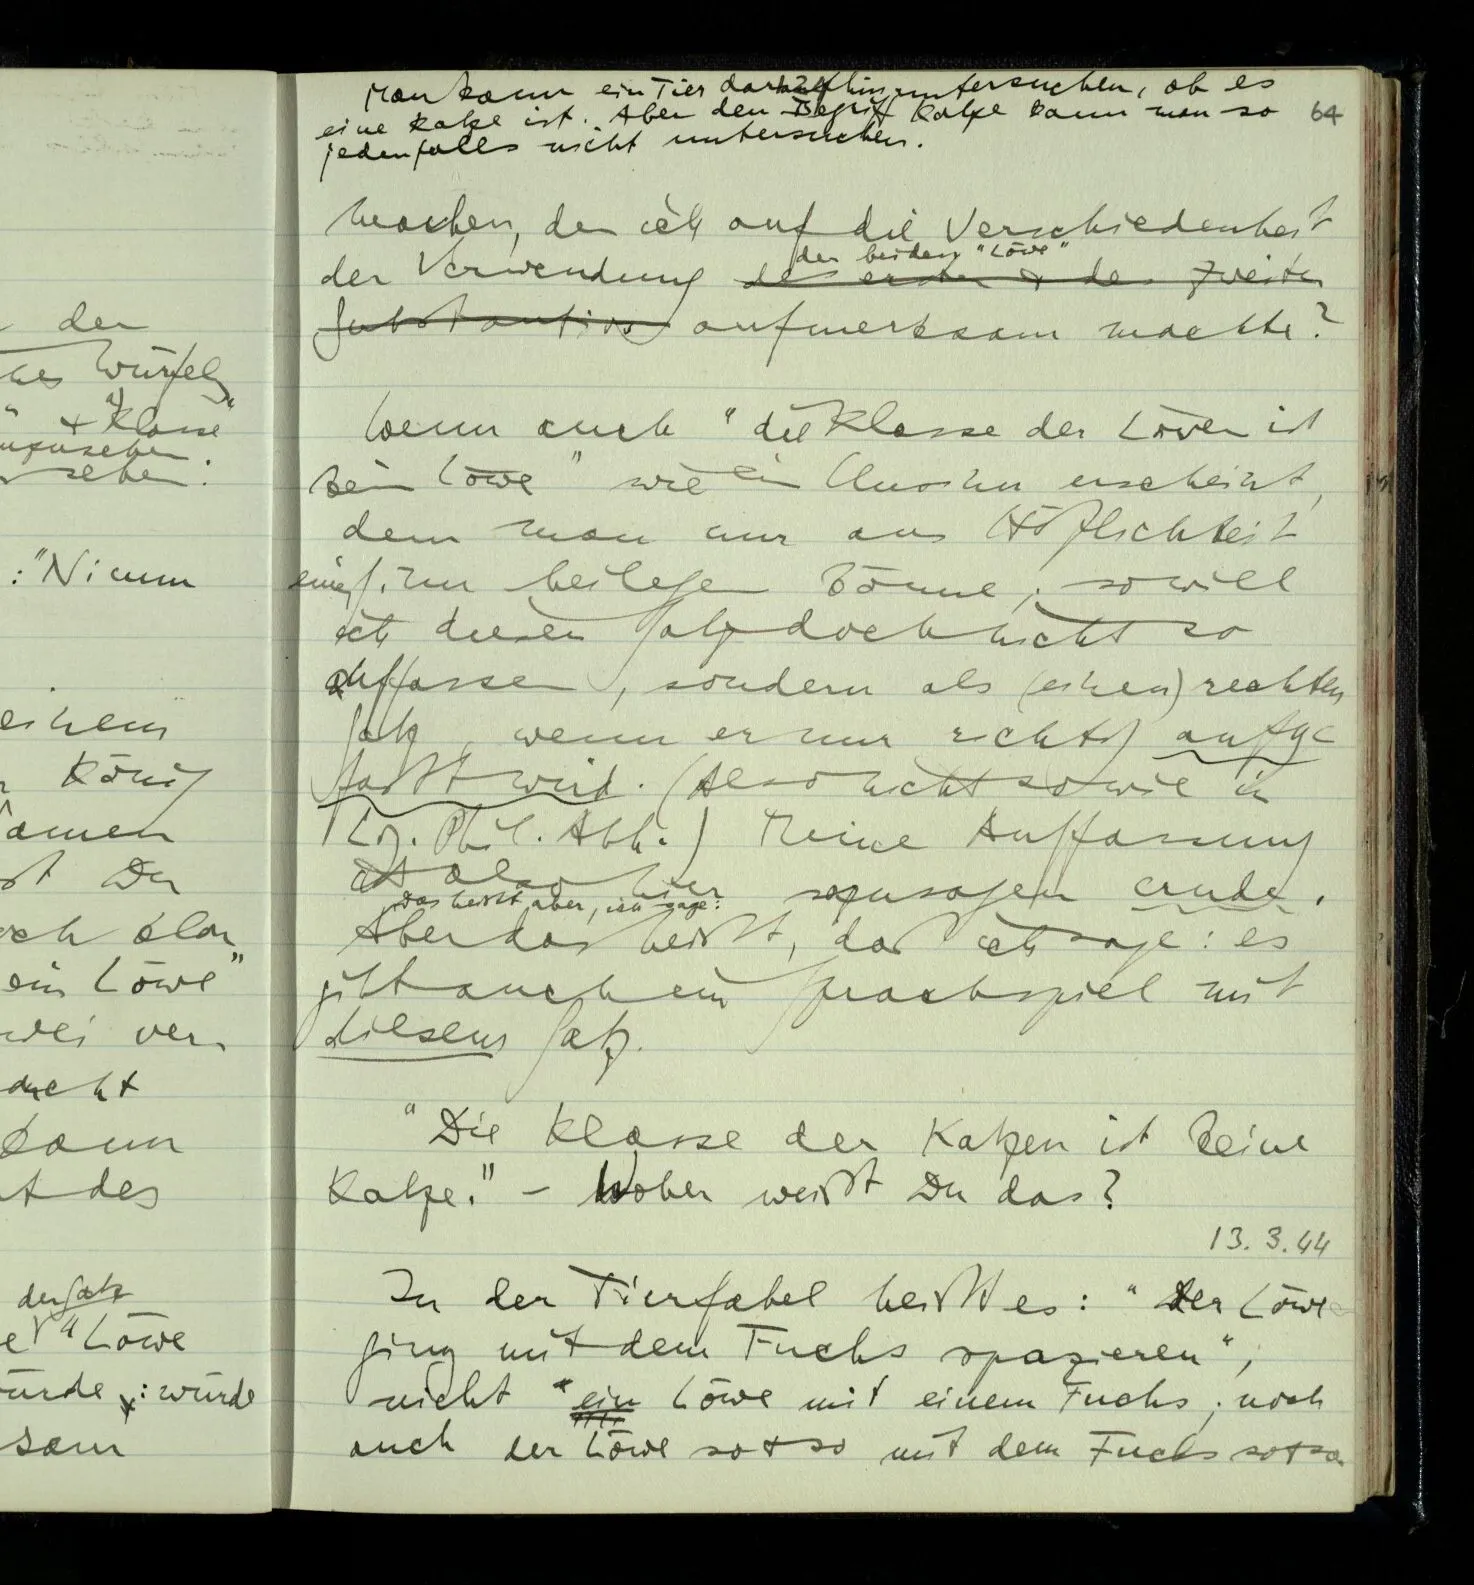 der
Würfels
" + "Klasse"
anzusehen.
sehen.
: "Nimm
einem
König
Namen
Du
klar,
ein Löwe"
zwei ver
nicht
kann
des
der Satz
"Löwe
würde : würde
sam
Man kann ein Tier daraufhin untersuchen, ob es
eine Katze ist. Aber den Begriff Katze kann man so
jedenfalls nicht untersuchen.
64
machen, der ich auf die Verschiedenheit
der beiden "Löwe"
der Verwendung des ersten & des zweiten
Substantivs aufmerksam machte?
Wenn auch "die Klasse der Löwen ist
kein Löwe" wie ein Unsinn erscheint,
dem man nur aus Höflichkeit
einen Sinn beilegen könne; so will
ich diesen Satz doch nicht so
auffassen, sondern als (einen) rechten
Satz, wenn er nur richtig aufge
fasst wird. (Also nicht so wie in
Log. Phil. Abh.) Meine Auffassung
ist also hier sozusagen crude.
Das heißt aber, ich sage:
Aber das heißt, daß ich sage: es
gibt auch ein Sprachspiel mit
diesem Satz.
"Die Klasse der Katzen ist keine
Katze." – Woher weißt Du das?
13. 3. 44
In der Tierfabel heißt es: "Der Löwe
ging mit dem Fuchs spazieren",
nicht "ein Löwe mit einem Fuchs; noch
auch der Löwe so + so mit dem Fuchs so + so